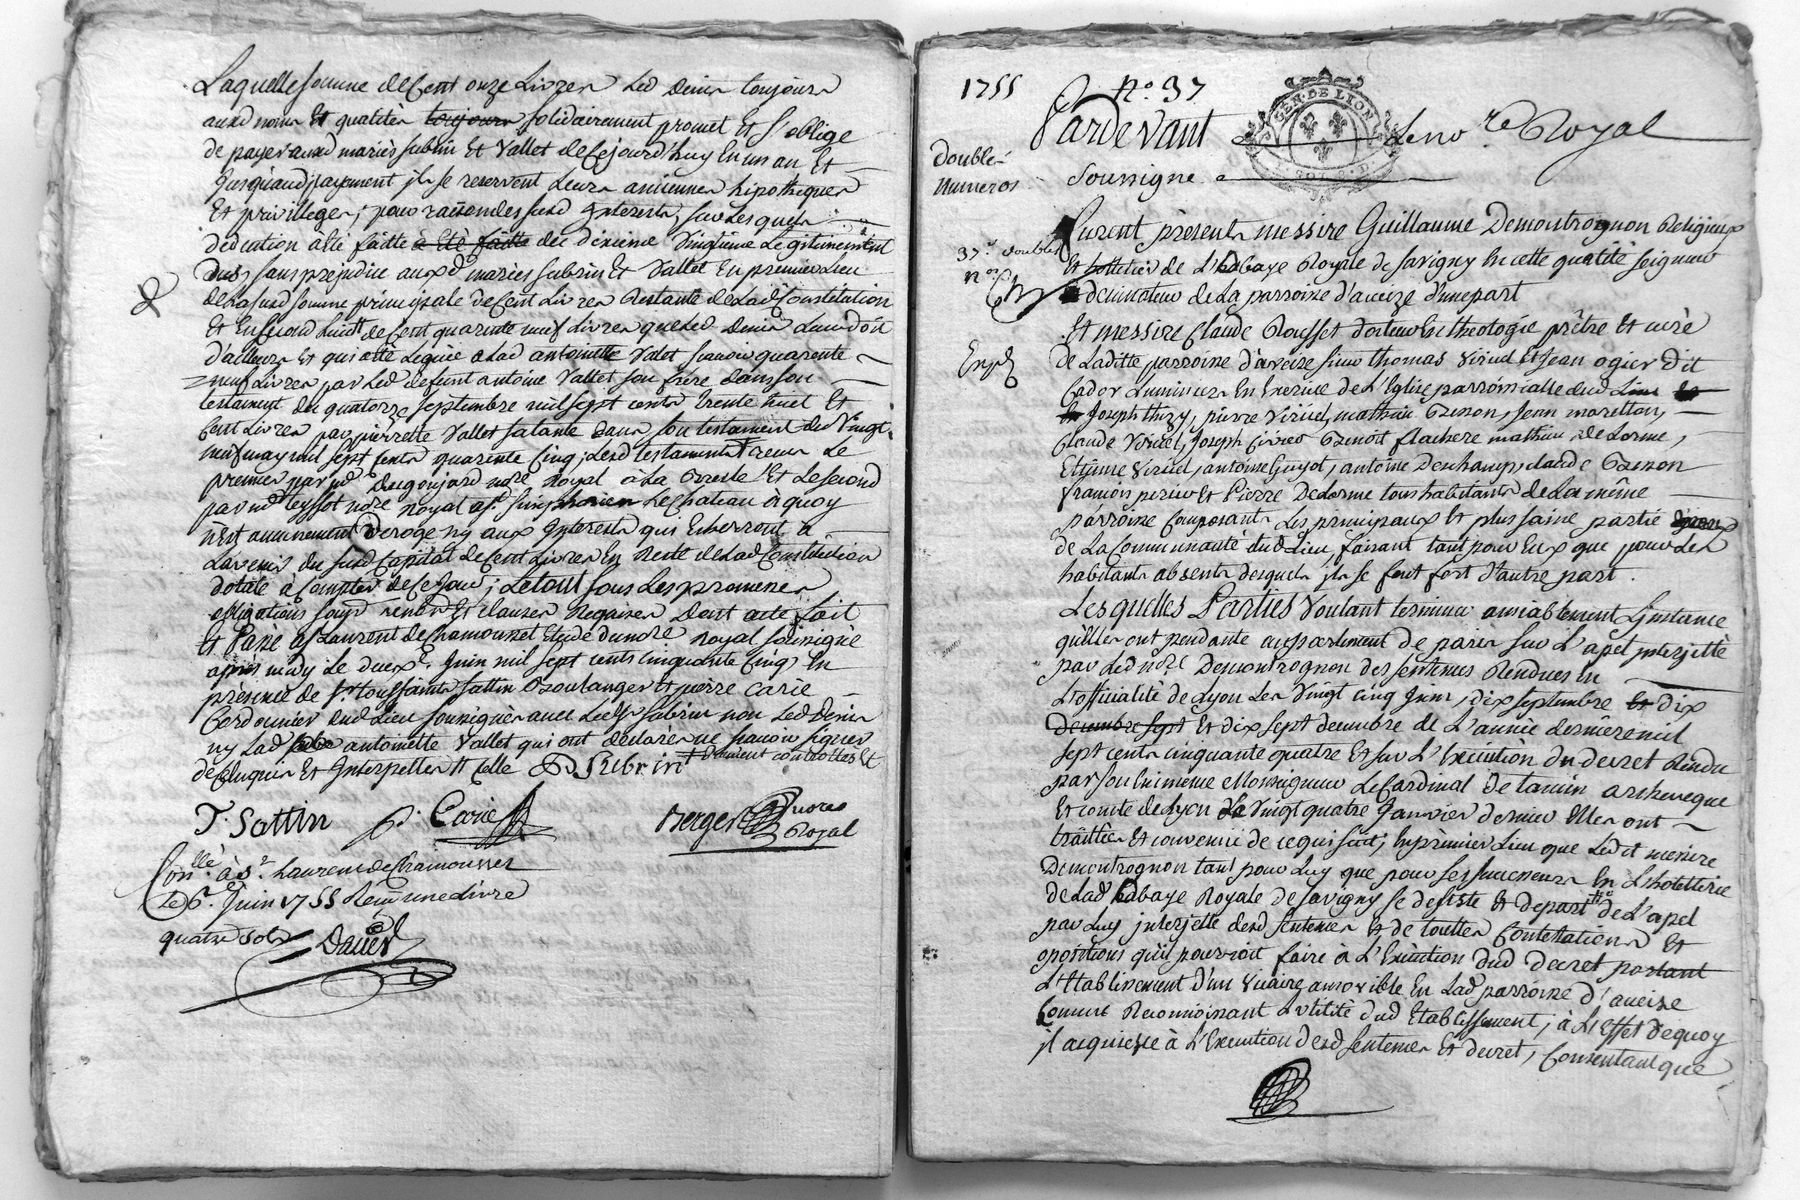 Laquelle somme de Cent onze Livres led Denis toujours
auxd noms Et qualités toujours solidairement promet Et s'oblige
de payer auxd mariés subrin Et Vallet de Cejourd'huy En un an Et
Jusqu'aud payement ils se reservent Leurs anciennes hipotheques
Et privilleges, pour raison desd Interests, sur Lesquels
dedection a été faitte a été faitte des dixieme Vingtieme Legitimement
dus, sans prejudice auxd mariés subrin Et Vallet En premier Lieu
de lasusd somme principale de Cent Livres Restante de Lad Constitution
Et En second Lieu de Cent quarente neuf Livres que led Denis Leur doit
d'ailleurs Et qui a été Leguée a Lad antoinette Valet scavoir quarente
neuf Livres par Led defeunt antoine Vallet son frére dans son
testament du quatorze septembre mil sept cents trente huit Et
Cent Livres par pierrette Vallet sa tante dans son testament dud Vingt
neuf may mil sept cents quarente Cinq, Lesd testaments receus Le
premier par me Dugoujard nore Royal à La Bresle Et Le second
par me teyssot nore Royal a st simphorien Le Chateau à quoy
n'est aucunement deroge ny aux Interests qui Echerront à
L'avenir du susd Capital de Cent Livres En Reste de Lad Constitution
dotale à Compter de Ce Jour; Le tout sous Les promesses
obligations soumd renons Et clauses Requises Dont acte fait
Et Passé a st Laurent de Chamousset Etude dunore Royal soussigné
après midy Le deuxe Juin mil sept cents cinquante Cinq En
presence de sr toussaints sattin Boulanger Et pierre Carie
Cordonnier dud Lieu soussignés avec Led sr subrin non Led Denis
ny Lad antoinette Vallet qui ont déclaré ne scavoir signer
de Ce Enquis Et Interpellés Et Celle Subrin duement controllés Et
T. Sattin P. Carie Berger nore
Royal
Conllé à st. Laurent de Chamousset
Le 6e. Juin 1755 Receu une Livre
quatre sols Daviel
1755 No. 37
Pardevant Le nore Royal
Double
Numeros
soussigné
GEN. DE LION
37e. double
no.
Furent présents messire Guillaume Demontrognon Religieux
Et hottelier de L'abaye Royale de savigny En cette qualité seigneur
decimateur de La parroisse d'aveize d'une part
Et messire Claude Rousset docteur En theologie prêtre Et curé
Exp
de Laditte parroisse d'aveize sieur thomas Viricel Et Jean ogier dit
Cador Luminiers En Exercice de L'Eglise parroissialle dud Lieu
Joseph thizy, pierre Viricel, mathieu Grison, Jean maretton,
Claude Viricel, Joseph Benoit flachere mathieu delorme,
Etienne Viricel, antoine Guyot, antoine Deschamps, claude
françois perier Et Pierre Delorme tous habitants de La même
parroisse Composants Les principaux Et plus saine partie
de La Communauté dud Lieu, faisant tant pour Eux que pour Les
habitants absents desquels ils se font fort d'autre part.
Lesquelles Parties Voulant terminer amiablement L'instance
qu'Elles ont pendante au parlement de paris sur L'apel interjetté
par led nore Demontrognon des sentences Rendues En
L'officialité de Lyon Les Vingt cinq Juin, dix septembre Et dix
Decembre sept Et dix sept decembre de L'année derniere mil
sept cents cinquante quatre Et sur L'Execution du decret Rendu
par son Eminence Monseigneur Le Cardinal De tancin archeveque
Et comte de Lyon Le Vingt quatre Janvier dernier Elles ont
traittée Et convenue de ce qui suit; En premier Lieu que Ledit messire
Demontrognon tant pour Luy que pour ses successeurs En L'hotellerie
de Lad abaye Royale de savigny se desiste Et depart de L'apel
par Luy interjetté desd sentences Et de touttes Contestations Et
opositions qu'il pourroit faire à L'Execution dud decret portant
L'Etablissement d'un Vicaire amovible En Lad parroisse d'aveize
Comme Reconnoissant L'utilité dud Etablissement, à L'Effet dequoy
il acquiesse à L'Execution desd sentences Et decret, Consentant que